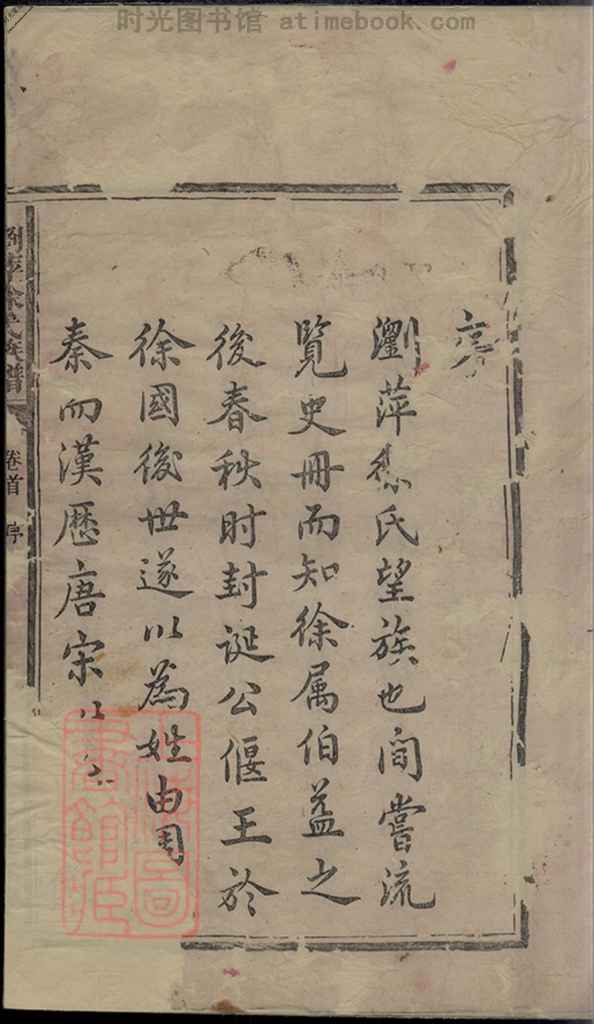 时光图书馆 atimebook.com
序
瀏萍徐氏望族也间嘗流
覽史冊而知徐属伯益之
後春秋时封誕公偃王於
徐國後世遂以為姓由周
秦而漢歷唐宋以
瀏萍徐氏族譜
卷首
序